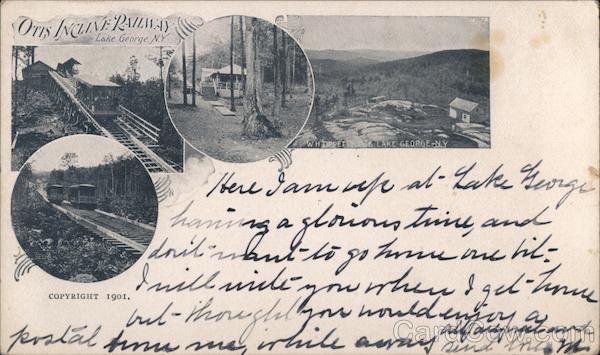 OTIS INCLINE RAILWAY
LAKE GEORGE, N.Y.
LAKE GEORGE-N.Y
COPYRIGHT 1901.
Here I am up at Lake George
having a glorious time, and
don't want to go home one bit.
I will write you when I get home
but thought you would enjoy a
postal from me, while away
CardCow.com